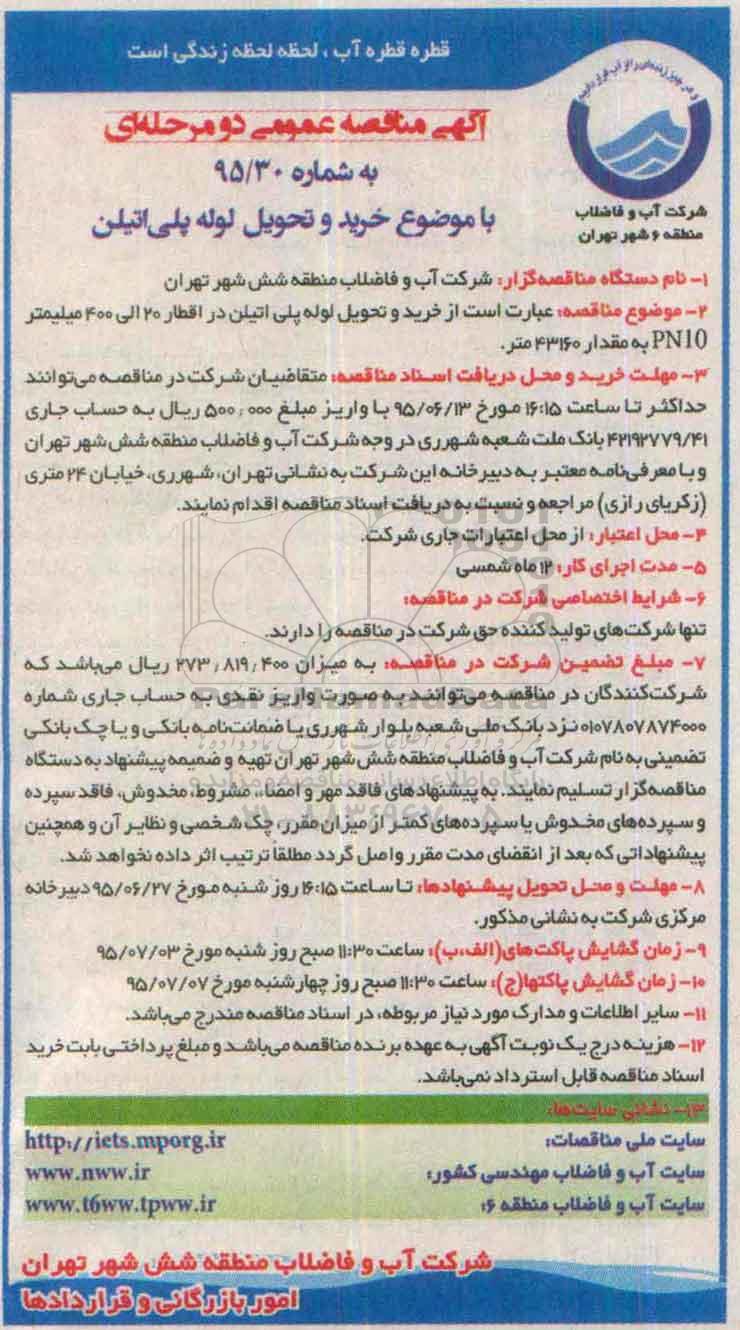 قطره قطره آب ، لحظه لحظه زندگی است
شرکت آب و فاضلاب
منطقه ۶ شهر تهران
آگهی مناقصه عمومی دو مرحله‌ای
به شماره ۹۵/۳۰
با موضوع خرید و تحویل لوله پلی‌اتیلن
۱- نام دستگاه مناقصه‌گزار: شرکت آب و فاضلاب منطقه شش شهر تهران
۲- موضوع مناقصه: عبارت است از خرید و تحویل لوله پلی اتیلن در اقطار ۲۰ الی ۴۰۰ میلیمتر
PN10 به مقدار ۴۳۱۶۰ متر.
۳- مهلت خرید و محل دریافت اسناد مناقصه: متقاضیان شرکت در مناقصه می‌توانند
حداکثر تا ساعت ۱۶:۱۵ مورخ ۹۵/۰۶/۱۳ با واریز مبلغ ۵۰۰٫۰۰۰ ریال به حساب جاری
۴۲۱۹۲۷۷۹/۴۱ بانک ملت شعبه شهرری در وجه شرکت آب و فاضلاب منطقه شش شهر تهران
و با معرفی‌نامه معتبر به دبیرخانه این شرکت به نشانی تهران، شهرری، خیابان ۲۴ متری
(زکریای رازی) مراجعه و نسبت به دریافت اسناد مناقصه اقدام نمایند.
۴- محل اعتبار: از محل اعتبارات جاری شرکت.
۵- مدت اجرای کار: ۱۲ ماه شمسی
۶- شرایط اختصاصی شرکت در مناقصه:
تنها شرکت‌های تولید کننده حق شرکت در مناقصه را دارند.
۷- مبلغ تضمین شرکت در مناقصه: به میزان ۲۷۳٫۸۱۹٫۴۰۰ ریال می‌باشد که
شرکت‌کنندگان در مناقصه می‌توانند به صورت واریز نقدی به حساب جاری شماره
۰۱۰۷۸۰۷۸۷۴۰۰۰ نزد بانک ملی شعبه بلوار شهرری یا ضمانت‌نامه بانکی و یا چک بانکی
تضمینی به نام شرکت آب و فاضلاب منطقه شش شهر تهران تهیه و ضمیمه پیشنهاد به دستگاه
مناقصه‌گزار تسلیم نمایند. به پیشنهادهای فاقد مهر و امضاء، مشروط، مخدوش، فاقد سپرده
و سپرده‌های مخدوش یا سپرده‌های کمتر از میزان مقرر، چک شخصی و نظایر آن و همچنین
پیشنهاداتی که بعد از انقضای مدت مقرر واصل گردد مطلقاً ترتیب اثر داده نخواهد شد.
۸- مهلت و محل تحویل پیشنهادها: تا ساعت ۱۶:۱۵ روز شنبه مورخ ۹۵/۰۶/۲۷ دبیرخانه
مرکزی شرکت به نشانی مذکور.
۹- زمان گشایش پاکت‌های (الف،ب): ساعت ۱۱:۳۰ صبح روز شنبه مورخ ۹۵/۰۷/۰۳
۱۰- زمان گشایش پاکتها(ج): ساعت ۱۱:۳۰ صبح روز چهارشنبه مورخ ۹۵/۰۷/۰۷
۱۱- سایر اطلاعات و مدارک مورد نیاز مربوطه، در اسناد مناقصه مندرج می‌باشد.
۱۲- هزینه درج یک نوبت آگهی به عهده برنده مناقصه می‌باشد و مبلغ پرداختی بابت خرید
اسناد مناقصه قابل استرداد نمی‌باشد.
۱۳- نشانی سایت‌ها:
سایت ملی مناقصات: http://iets.mporg.ir
سایت آب و فاضلاب مهندسی کشور: www.nww.ir
سایت آب و فاضلاب منطقه ۶: www.t6ww.tpww.ir
شرکت آب و فاضلاب منطقه شش شهر تهران
امور بازرگانی و قراردادها